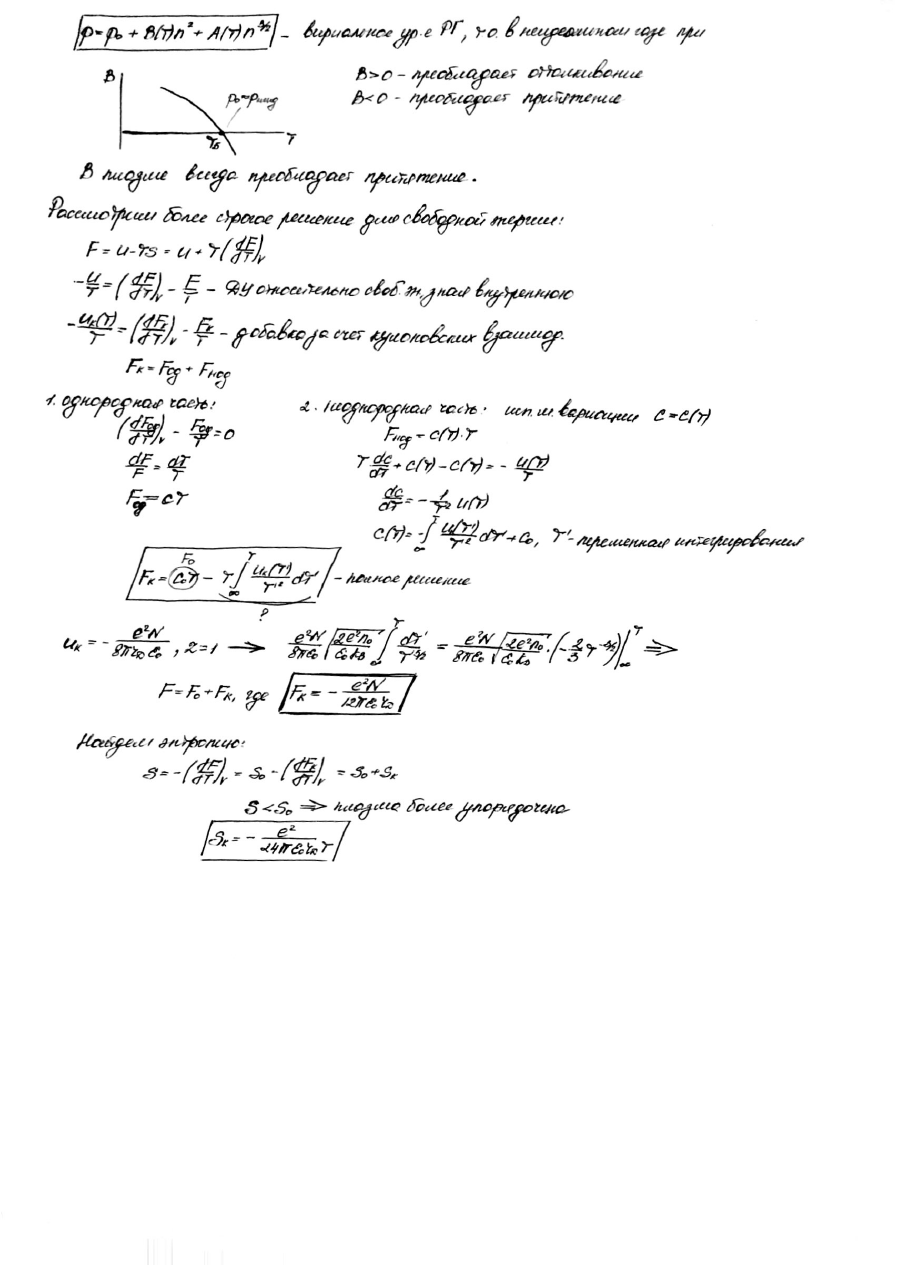 p = p₀ + B(T)n² + A(T)n^{3/2} – вириальное ур-е РГ, т.о. в неидеальном газе при
B>0 – преобладает отталкивание
B<0 – преобладает притяжение
B
p₀=pид
T_Б T
В плазме всегда преобладает притяжение.
Рассмотрим более строгое решение для свободной энергии:
F = U-TS = U + T(dF/dT)_V
-U/T = (dF/dT)_V - F/T – ДУ относительно своб. эн, зная внутреннюю
-U_K(T)/T = (dF_K/dT)_V - F_K/T – добавка за счет кулоновских взаимод.
F_K = F_од + F_неод
1. однородная часть:
(dF_од/dT)_V - F_од/T = 0
dF/F = dT/T
F_од = CT
2. Неоднородная часть: исп. м. вариации C=C(T)
F_неод = C(T)·T
T dC/dT + C(T) - C(T) = - U(T)/T
dC/dT = - 1/T² U(T)
C(T) = -∫_∞^T U(T')/T'² dT' + C₀, T' - переменная интегрирования
F₀
F_K = C₀T - T∫_∞^T U_K(T)/T'² dT' – полное решение
?
U_K = - e²N/8πr_Dε₀, z=1 → e²N/8πε₀ √(2e²n₀/ε₀k_B) ∫_∞^T dT'/T'^{5/2} = e²N/8πε₀ √(2e²n₀/ε₀k_B) · (-2/3 T^{-3/2})|_∞^T ⇒
F = F₀ + F_K, где F_K = - e²N/12πε₀r_D
Найдем энтропию:
S = -(dF/dT)_V = S₀ - (dF_K/dT)_V = S₀ + S_K
S < S₀ ⇒ плазма более упорядочена
S_K = - e²/24πε₀r_D T